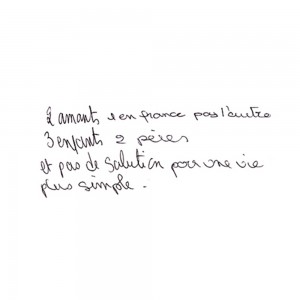 2 amants 1 en france pas l'autre
3 enfants 2 pères
et pas de solution pour une vie
plus simple.